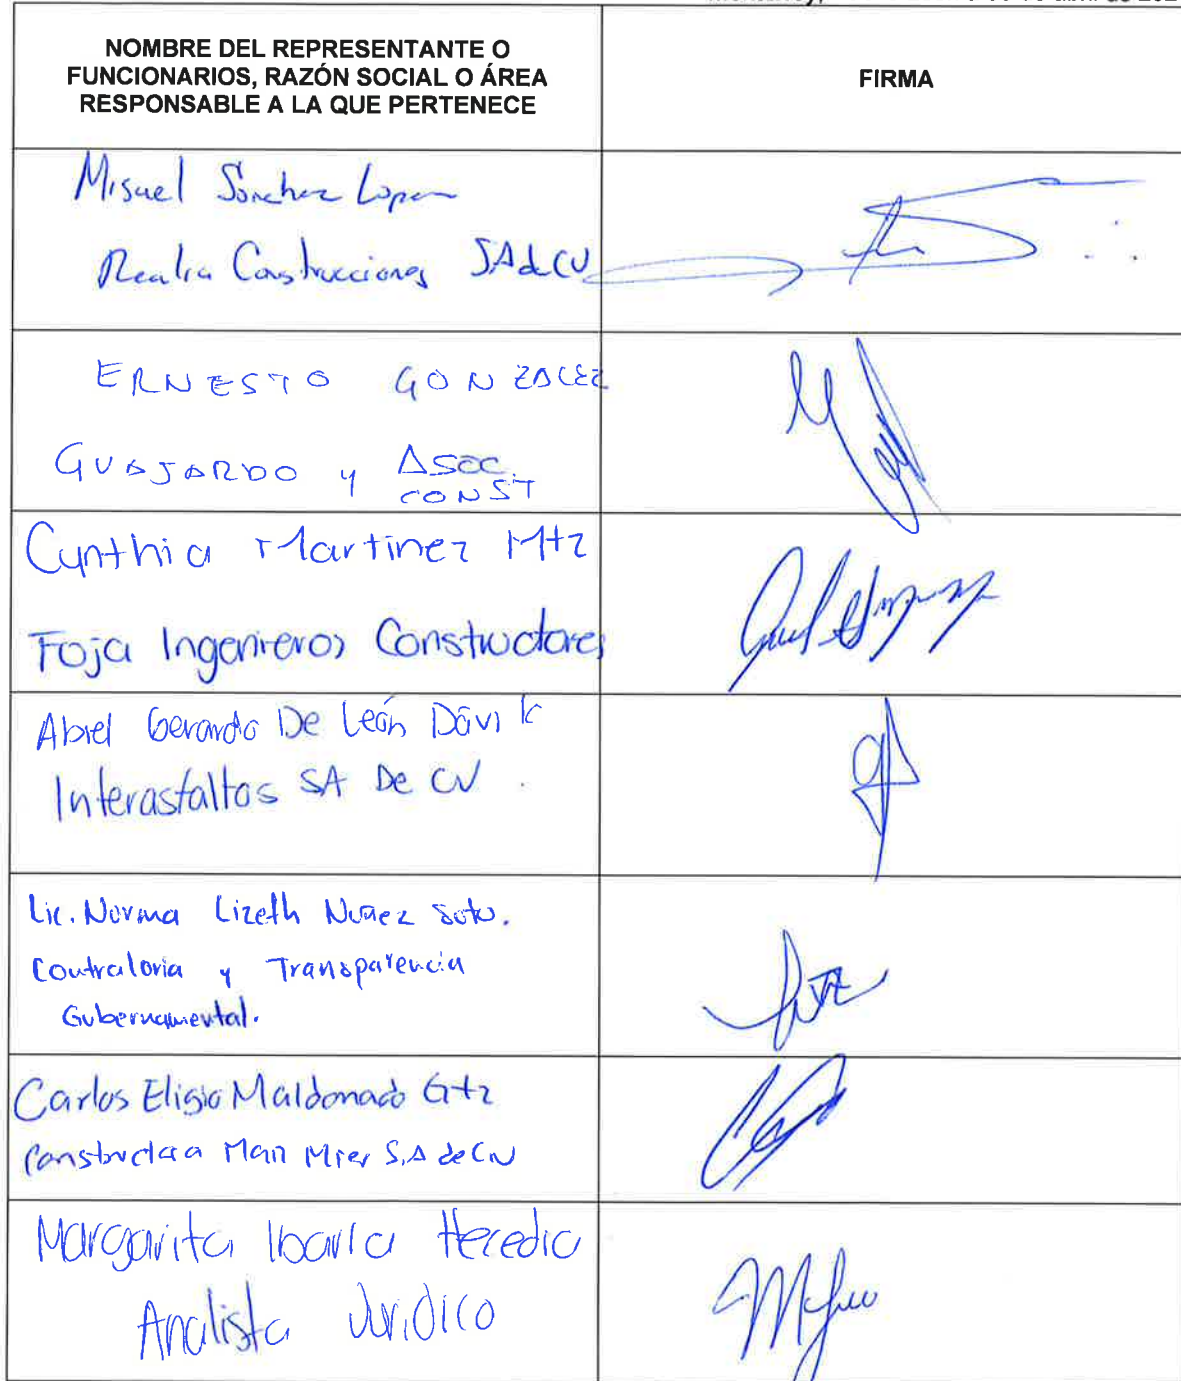 abril de 202
NOMBRE DEL REPRESENTANTE O
FUNCIONARIOS, RAZÓN SOCIAL O ÁREA
RESPONSABLE A LA QUE PERTENECE
FIRMA
Misael Sanchez Lopez
Realia Construcciones SA de CV
ERNESTO GONZALEZ
GUAJARDO y ASOC.
CONST
Cynthia Martinez Mtz
Foja Ingenieros Constructores
Abiel Gerardo De León Dávila
Interasfaltos SA De CV.
Lic. Norma Lizeth Nuñez Soto.
Contraloria y Transparencia
Gubernamental.
Carlos Eligio Maldonado Gtz
Constructora Maiz Mier S.A de CV
Margarita Ibarra Heredia
Analista Juridico